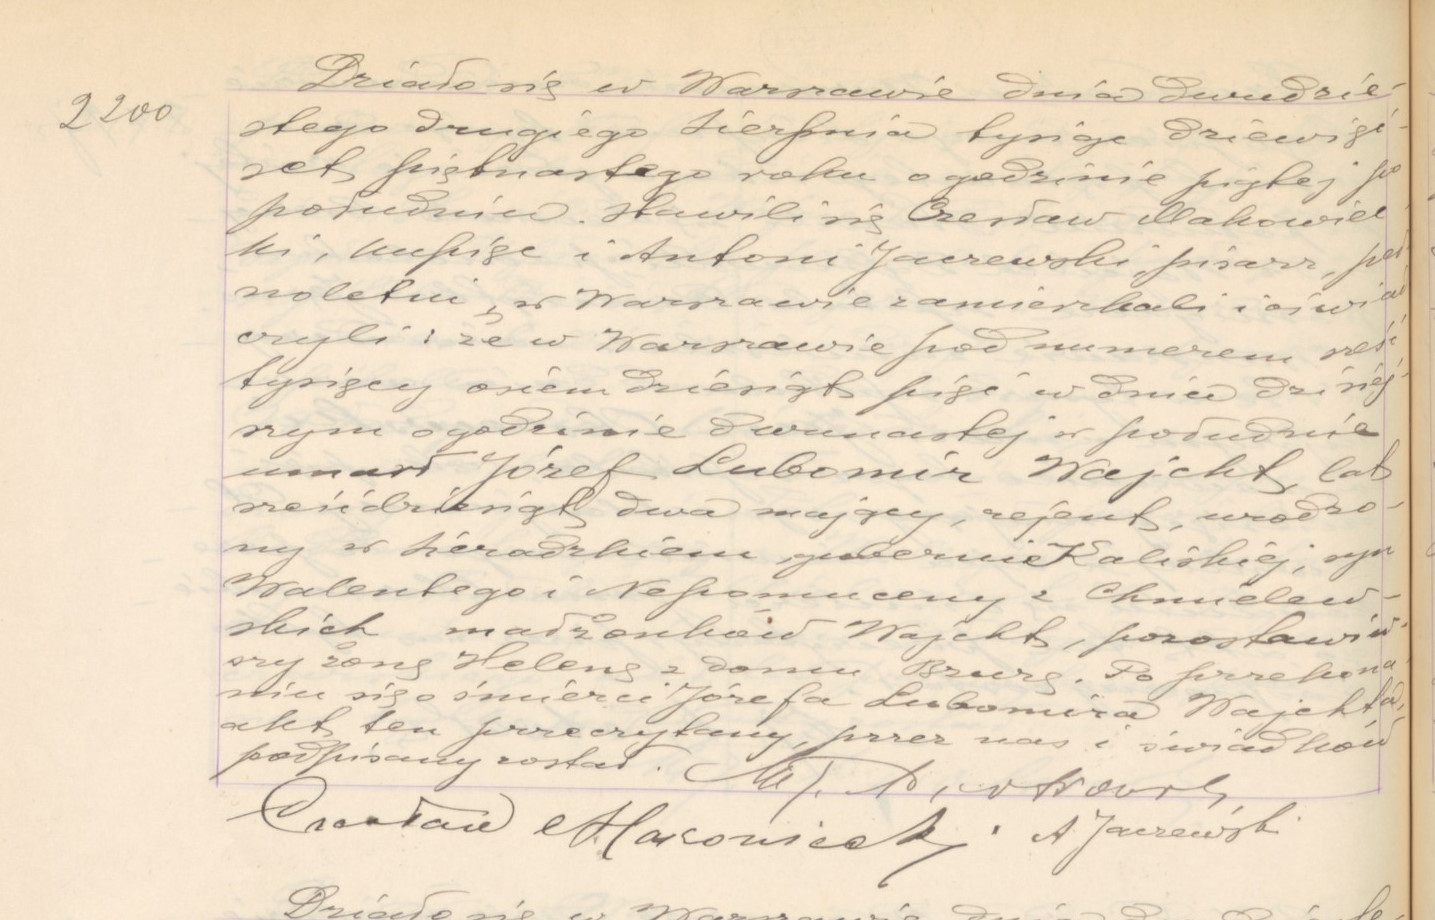 2200
Działo się w Warszawie dnia dwudzie-
stego drugiego sierpnia tysiąc dziewięć-
set piętnastego roku o godzinie piątej po
południu. Stawili się Czesław Makowiec-
ki, kupiec i Antoni Jaczewski, pisarz, peł-
noletni, w Warszawie zamieszkali i oświad-
czyli: że w Warszawie pod numerem sześć
tysięcy osiemdziesiąt pięć w dniu dzisiej-
szym o godzinie dwunastej w południe
umarł Józef Lubomir Wajcht, lat
sześćdziesiąt dwa mający, rejent, urodzo-
ny w Sieradzkiem, gubernie Kaliskiej, syn
Walentego i Nepomuceny z Chmielew-
skich małżonków Wajcht, pozostawiw-
szy żonę Helenę z domu. Po przekona-
niu się o śmierci Józefa Lubomira Wajchta,
akt ten przeczytany, przez nas i świadków
podpisany został.
Czesław Makowiecki. A Jaczewski
Działo się w Warszawie dnia